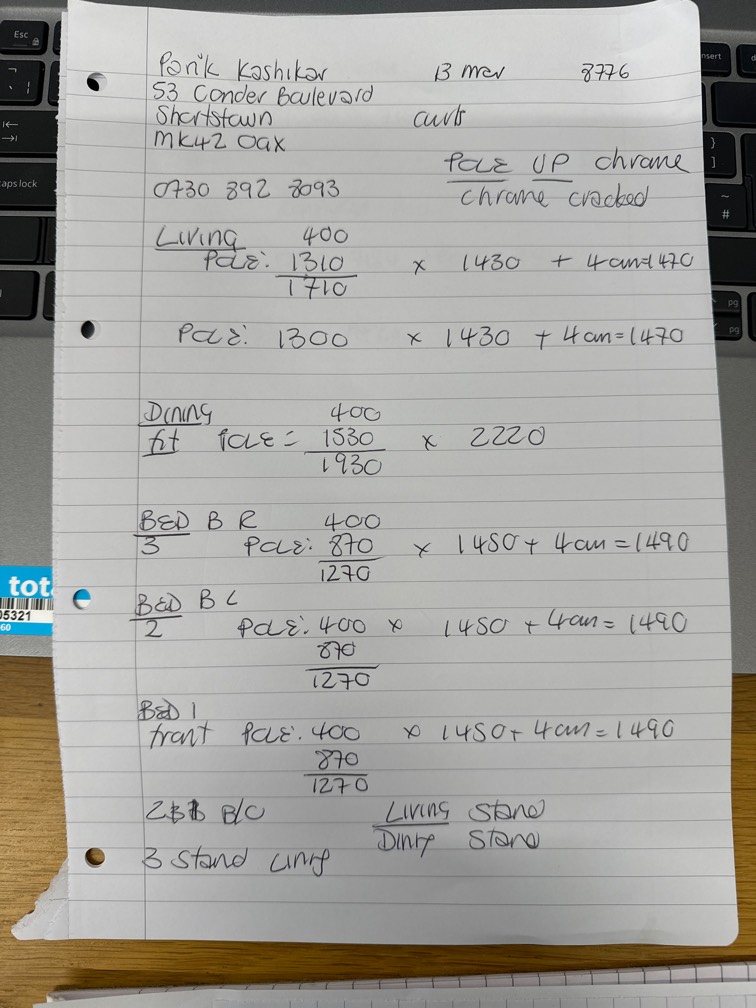 Parik Kashikar 13 mar 8776
53 Conder Boulevard
Shortstown curts
MK42 0ax
POLE UP chrome
chrome cracked
0730 892 8093
Living 400
POLE: 1310 x 1430 + 4cm=1470
1710
POLE: 1300 x 1430 + 4cm=1470
Dining 400
fit POLE = 1530 x 2220
1930
BED B R 400
3 POLE: 870 x 1450 + 4cm = 1490
1270
BED B L
2 POLE: 400 x 1450 + 4cm = 1490
870
1270
BED 1
front POLE: 400 x 1450 + 4cm = 1490
870
1270
B/O Living Stand
Stand
3 Stand
Esc
caps lock
insert
pg
pg
tot
05321
60